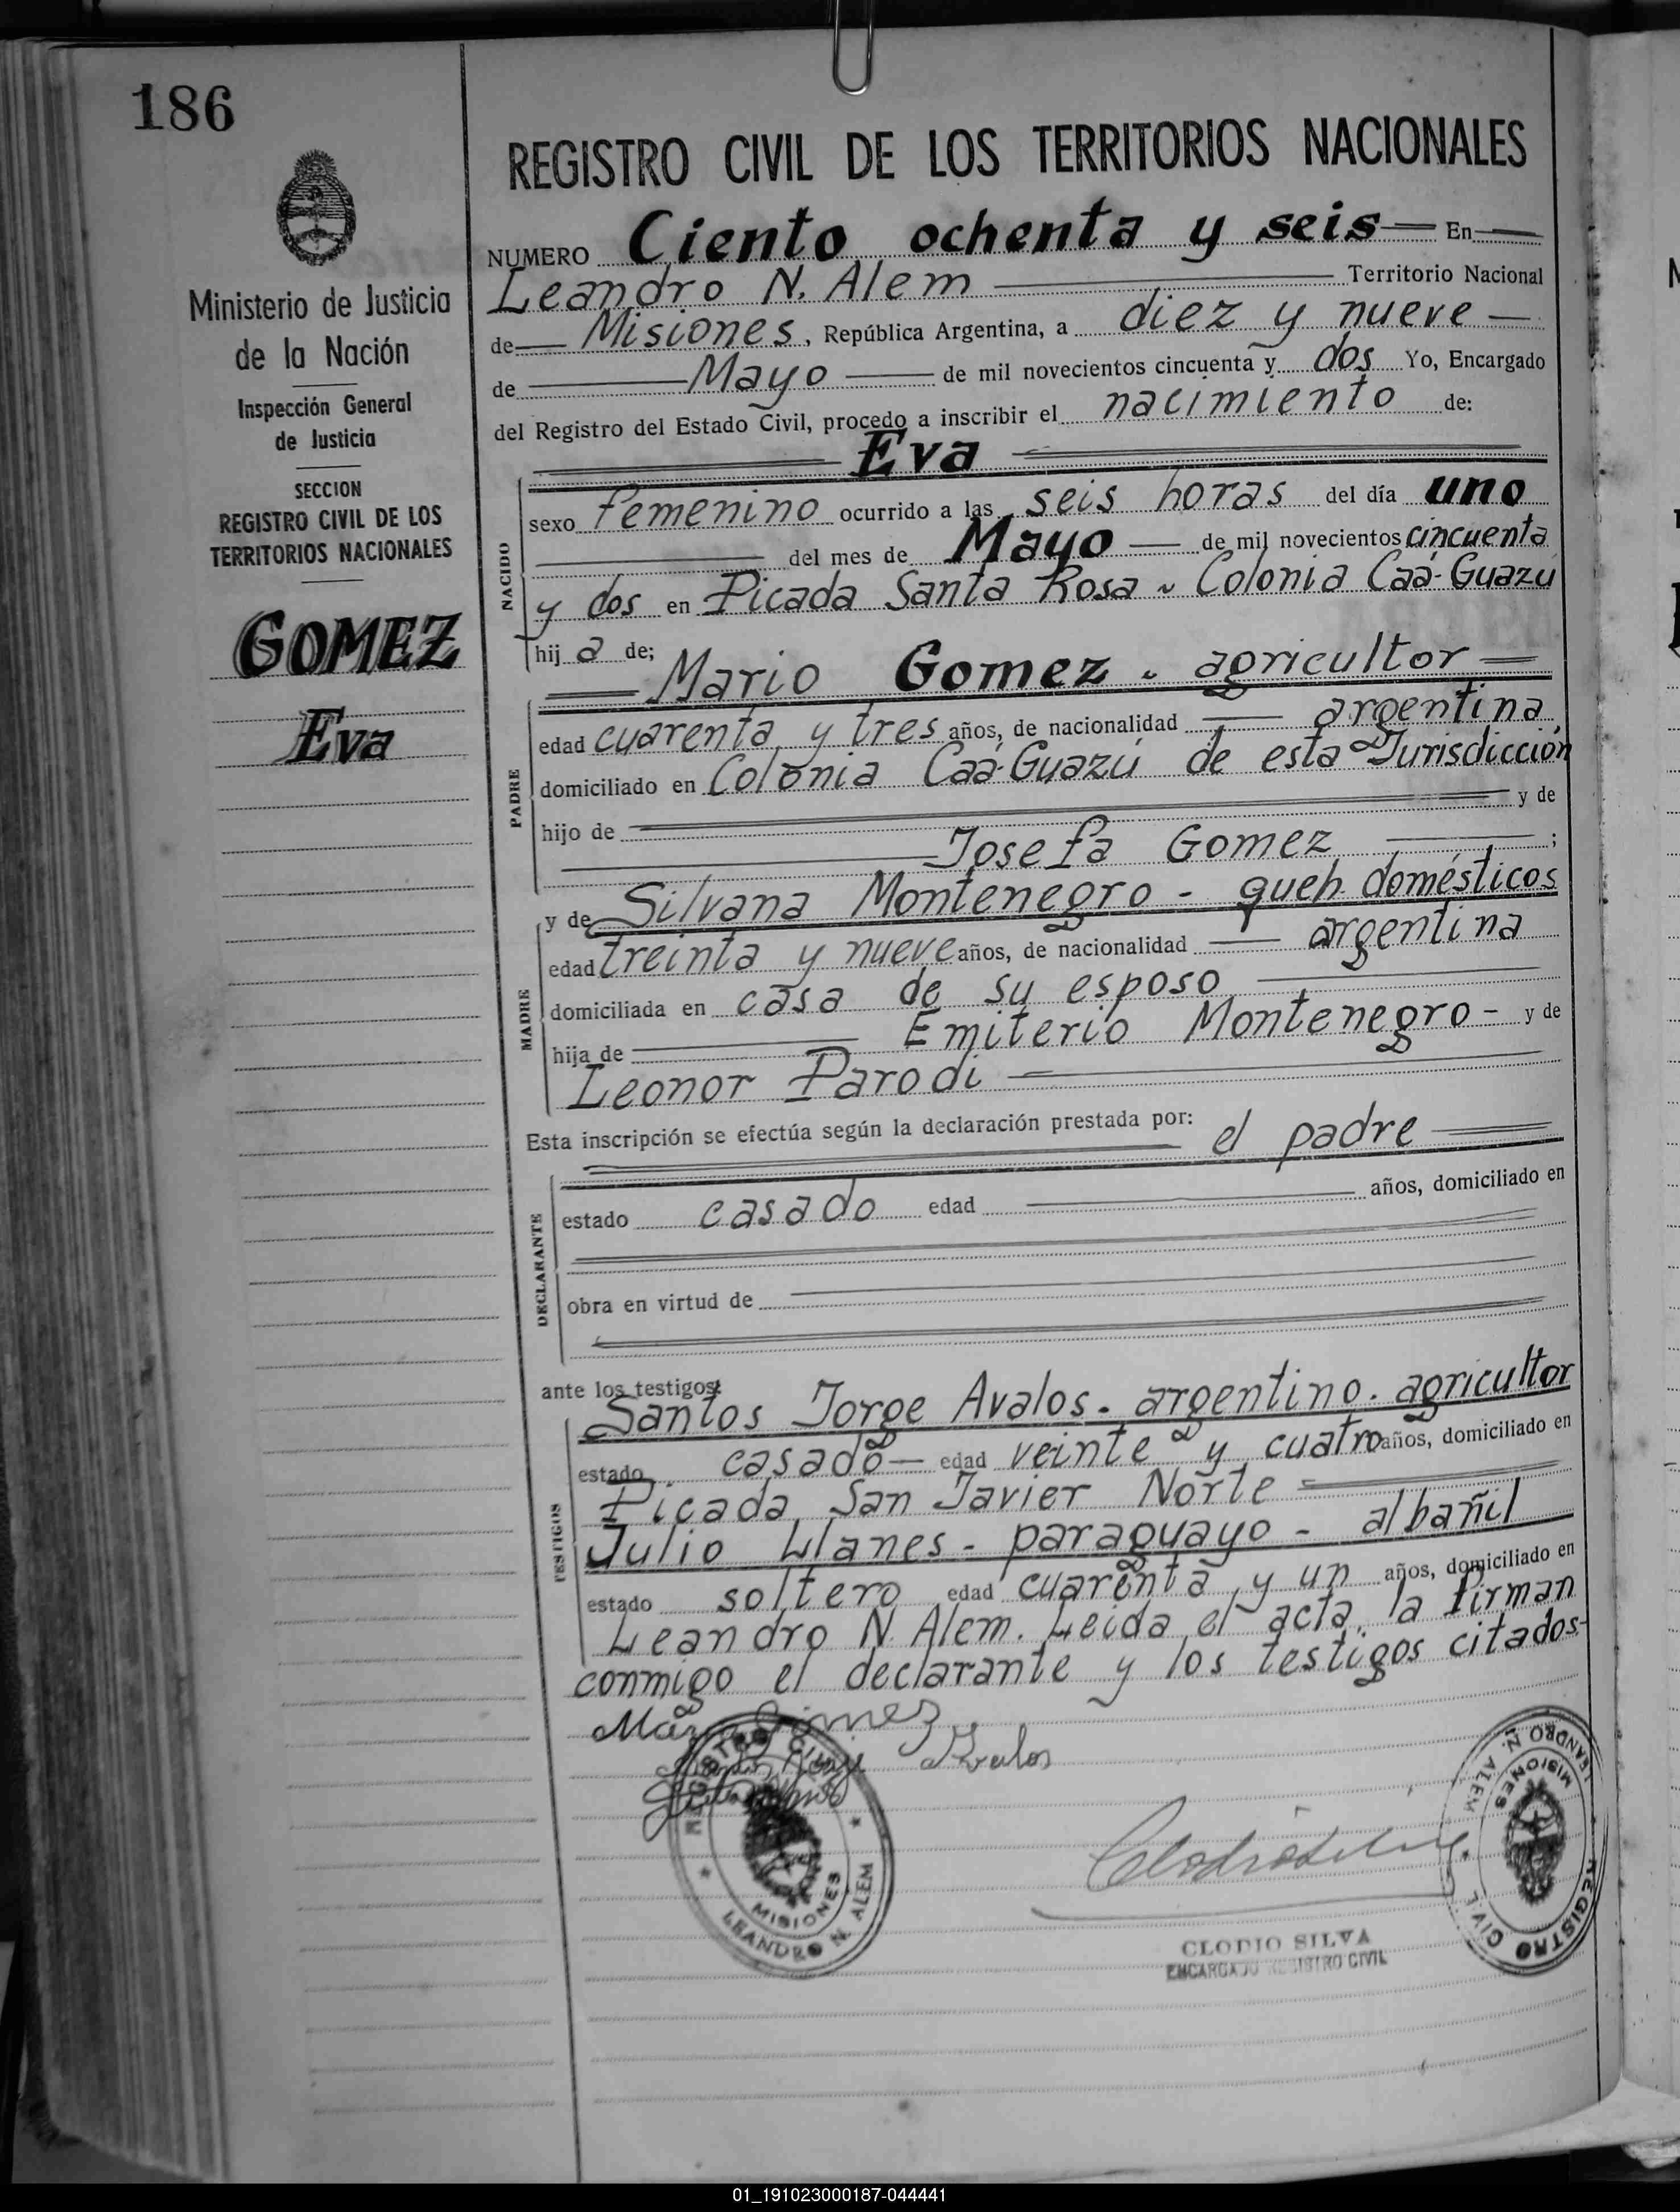 186
Ministerio de Justicia
de la Nación
Inspección General
de Justicia
SECCION
REGISTRO CIVIL DE LOS
TERRITORIOS NACIONALES
GOMEZ
Eva
REGISTRO CIVIL DE LOS TERRITORIOS NACIONALES
NUMERO Ciento ochenta y seis En
Leandro N. Alem Territorio Nacional
de Misiones, República Argentina, a diez y nueve
de Mayo de mil novecientos cincuenta y dos Yo, Encargado
del Registro del Estado Civil, procedo a inscribir el nacimiento de:
Eva
NACIDO
sexo femenino ocurrido a las seis horas del día uno
del mes de Mayo de mil novecientos cincuenta
y dos en Picada Santa Rosa - Colonia Caá-Guazú
hij a de;
Mario Gomez - agricultor
PADRE
edad cuarenta y tres años, de nacionalidad argentina
domiciliado en Colonia Caá-Guazú de esta Jurisdicción
hijo de y de
Josefa Gomez ;
MADRE
y de Silvana Montenegro - queh. domésticos
edad treinta y nueve años, de nacionalidad argentina
domiciliada en casa de su esposo
hija de Emiterio Montenegro - y de
Leonor Parodi
Esta inscripción se efectúa según la declaración prestada por: el padre
DECLARANTE
estado casado edad años, domiciliado en
obra en virtud de
ante los testigos:
TESTIGOS
Santos Jorge Avalos. argentino. agricultor
estado casado edad veinte y cuatro años, domiciliado en
Picada San Javier Norte
Julio Llanes - paraguayo - albañil
estado soltero edad cuarenta y un años, domiciliado en
Leandro N. Alem. Leida el acta, la firman
conmigo el declarante y los testigos citados-
Mario Gomez
Santos Jorge Avalos
REGISTRO CIVIL
MISIONES
LEANDRO N. ALEM
CLODIO SILVA
ENCARGADO REGISTRO CIVIL
REGISTRO CIVIL
LEANDRO N. ALEM
MISIONES
01_191023000187-044441